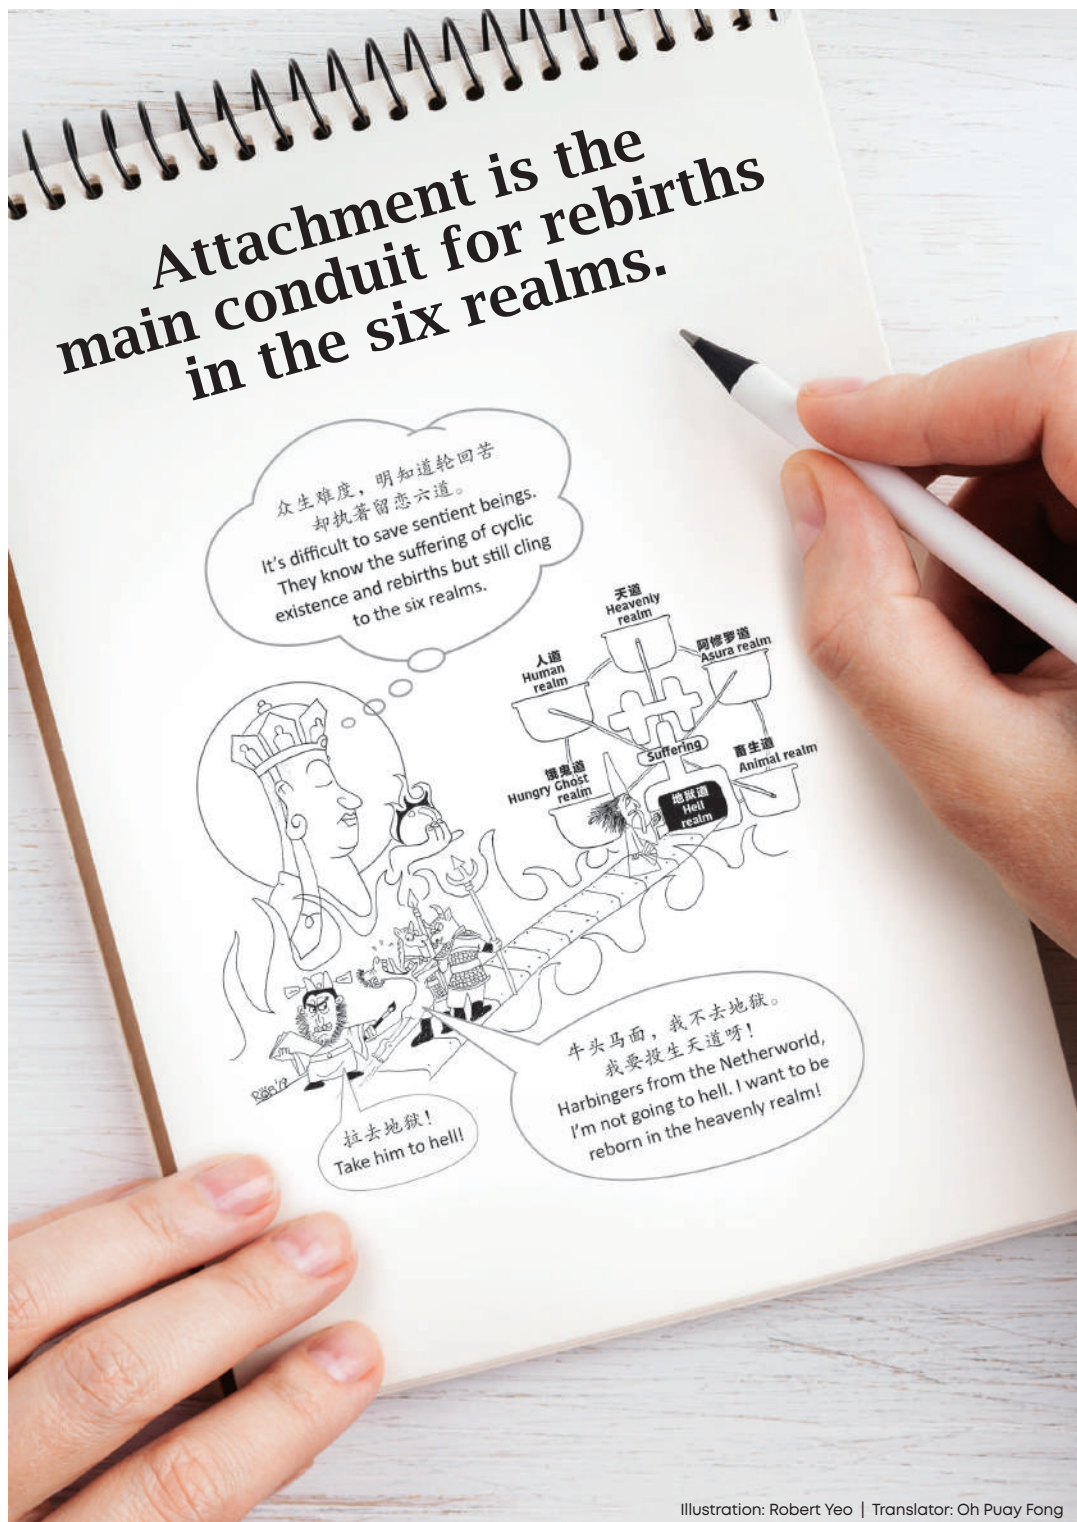 Attachment is the
main conduit for rebirths
in the six realms.
众生难度，明知道轮回苦
却执著留恋六道。
It's difficult to save sentient beings.
They know the suffering of cyclic
existence and rebirths but still cling
to the six realms.
天道
Heavenly
realm
阿修罗道
Asura realm
人道
Human
realm
Suffering
畜生道
Animal realm
饿鬼道
Hungry Ghost
realm
地狱道
Hell
realm
牛头马面，我不去地狱。
我要投生天道呀！
Harbingers from the Netherworld,
I'm not going to hell. I want to be
reborn in the heavenly realm!
拉去地狱！
Take him to hell!
Illustration: Robert Yeo | Translator: Oh Puay Fong